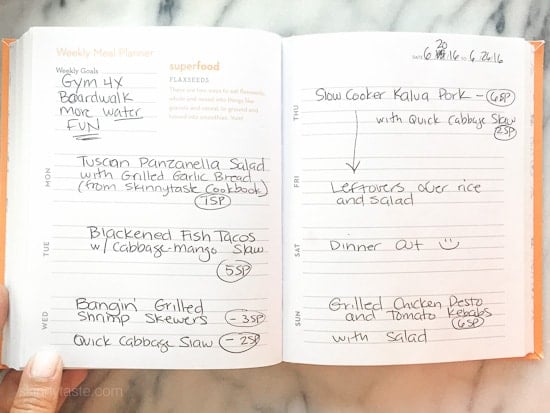 Weekly Meal Planner
Weekly Goals
Gym 4x
Boardwalk
more water
FUN
superfood
FLAXSEEDS
There are two ways to eat flaxseeds,
whole and mixed into things like
granola and cereal, or ground and
mixed into smoothies. Yum!
MON
Tuscan Panzanella Salad
with Grilled Garlic Bread
(from Skinnytaste Cookbook)
7SP
TUE
Blackened Fish Tacos
w/ Cabbage-mango Slaw
5SP
WED
Bangin' Grilled
Shrimp Skewers - 3SP
Quick Cabbage Slaw - 2SP
skinnytaste.com
DATE 6.20.16 to 6.26.16
THU
Slow Cooker Kalua Pork - 6SP
with Quick Cabbage Slaw
2SP
FRI
Leftovers over rice
and salad
SAT
Dinner out
SUN
Grilled Chicken Pesto
and Tomato Kebabs
6SP
with Salad